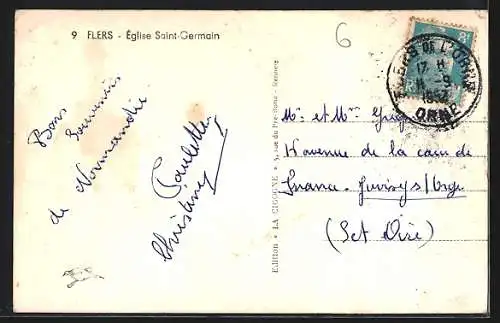 9 FLERS - Église Saint-Germain
6
Bons
Souvenirs
de Normandie
Paulette
Christiny
Édition " LA CIGOGNE "
FLERS DE L'ORNE
17 H
ORNE
Mr et Mme
avenue de la cour de
France. Juvisy s/Orge
(Set Oise)